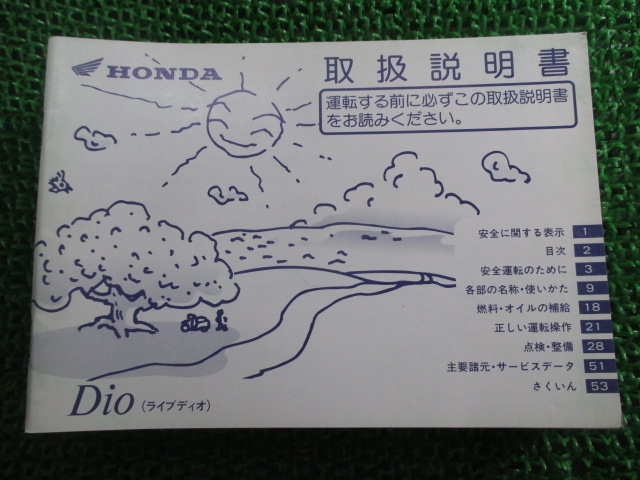 HONDA
取扱説明書
運転する前に必ずこの取扱説明書
をお読みください。
安全に関する表示 1
目次 2
安全運転のために 3
各部の名称・使いかた 9
燃料・オイルの補給 18
正しい運転操作 21
点検・整備 28
主要諸元・サービスデータ 51
さくいん 53
Dio (ライブディオ)